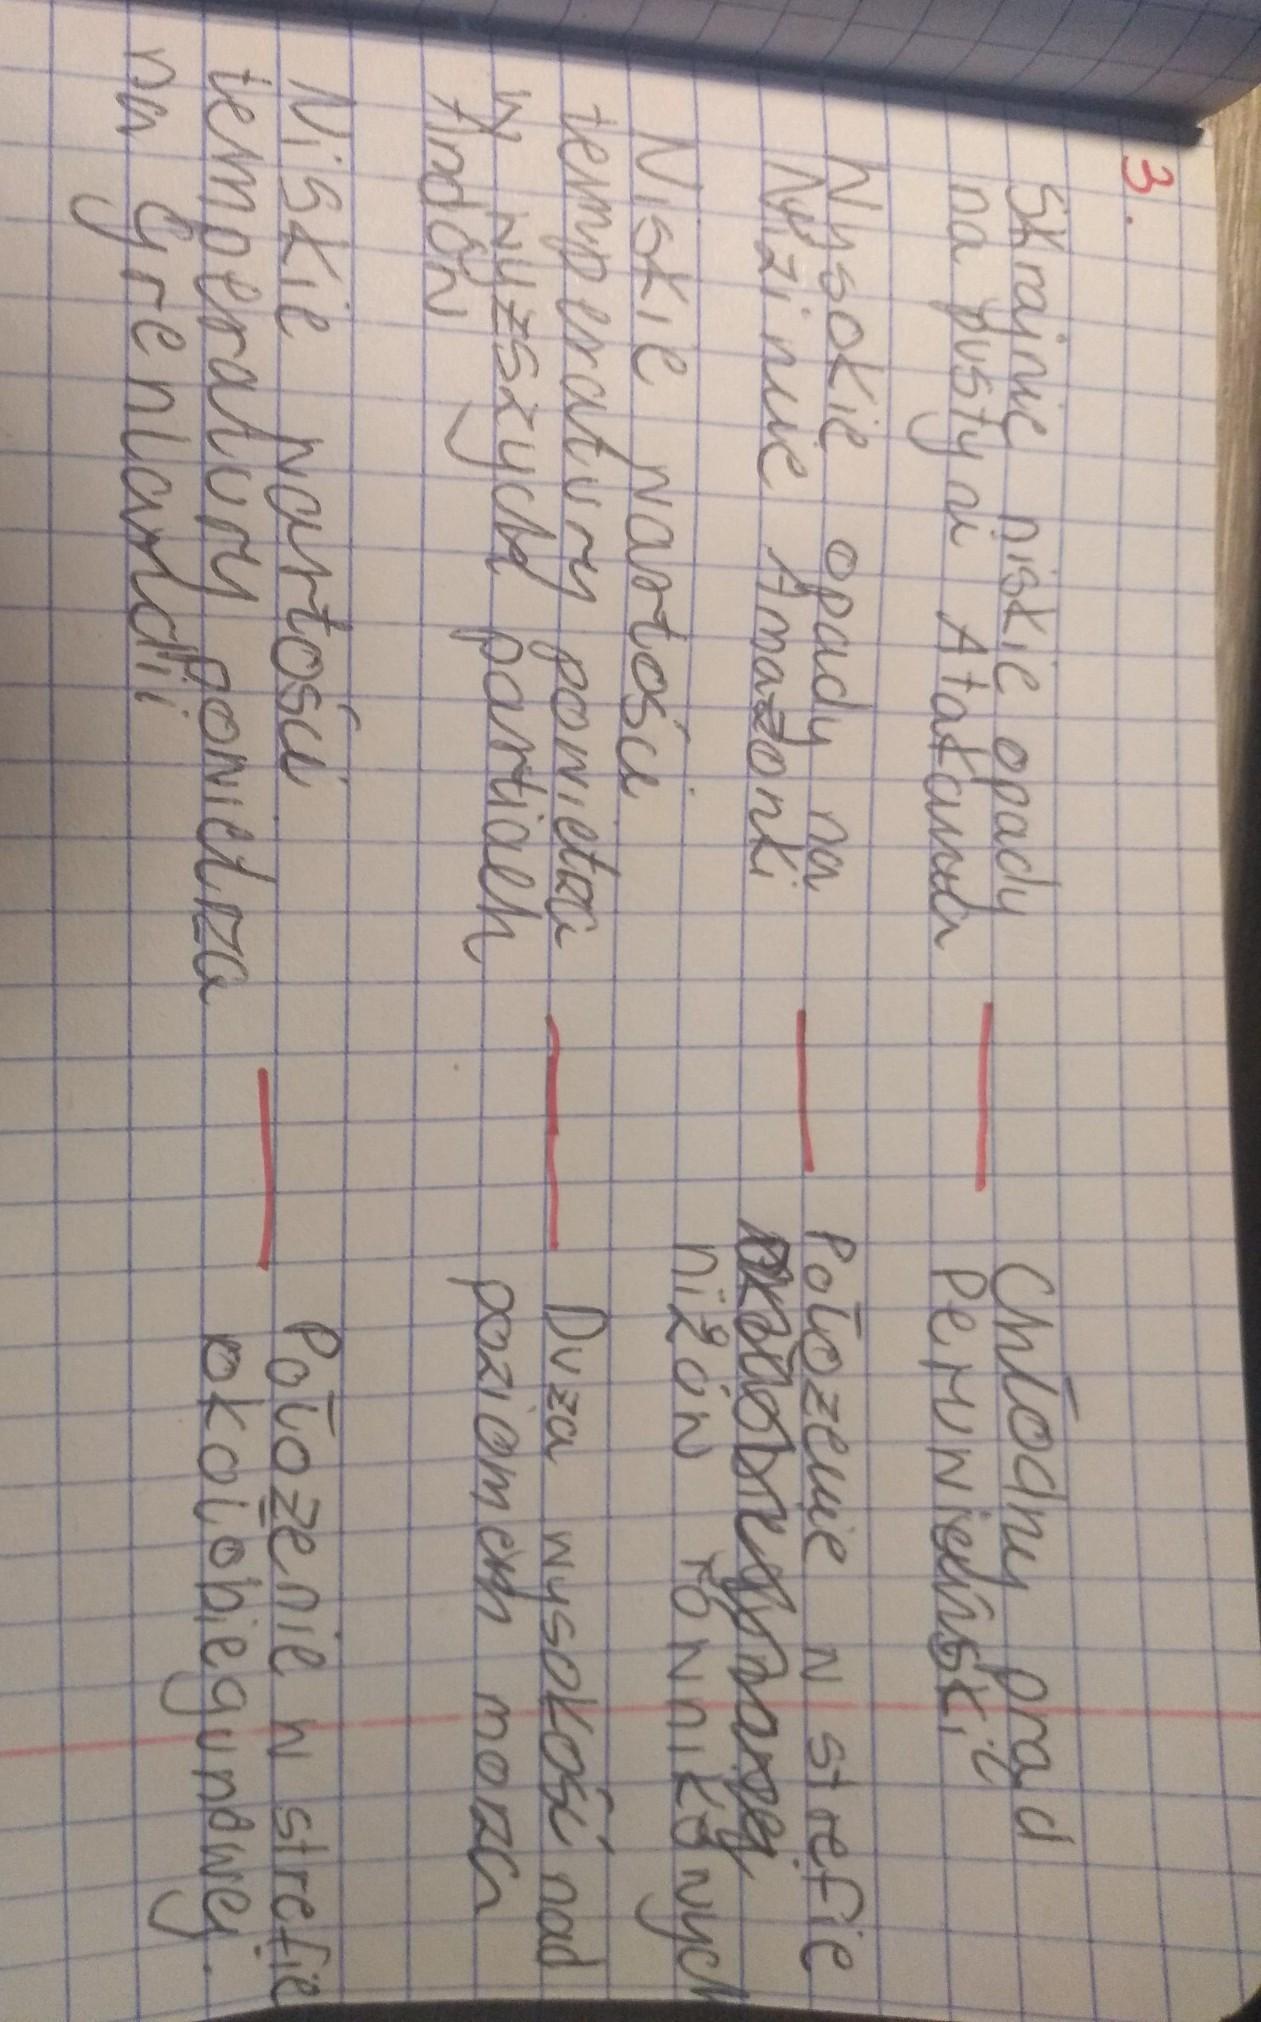 3.
Skrajnie niskie opady
na pustyni Atakama
Chłodny prąd
Peruwiański
Wysokie opady na
Nizinie Amazonki
Położenie w strefie
niżów równikowych
Niskie wartości
temperatury powietrza
w wyższych partiach
Andów
Duża wysokość nad
poziomem morza
Niskie wartości
temperatury powietrza
na Grenlandii
Położenie w strefie
okołobiegunowej.